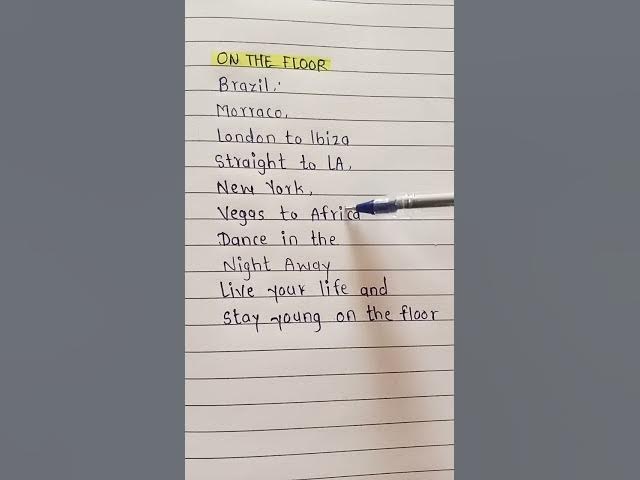 ON THE FLOOR
Brazil,
Morraco,
London to Ibiza
Straight to LA,
New York,
Vegas to Africa
Dance in the
Night Away
Live your life and
stay young on the floor